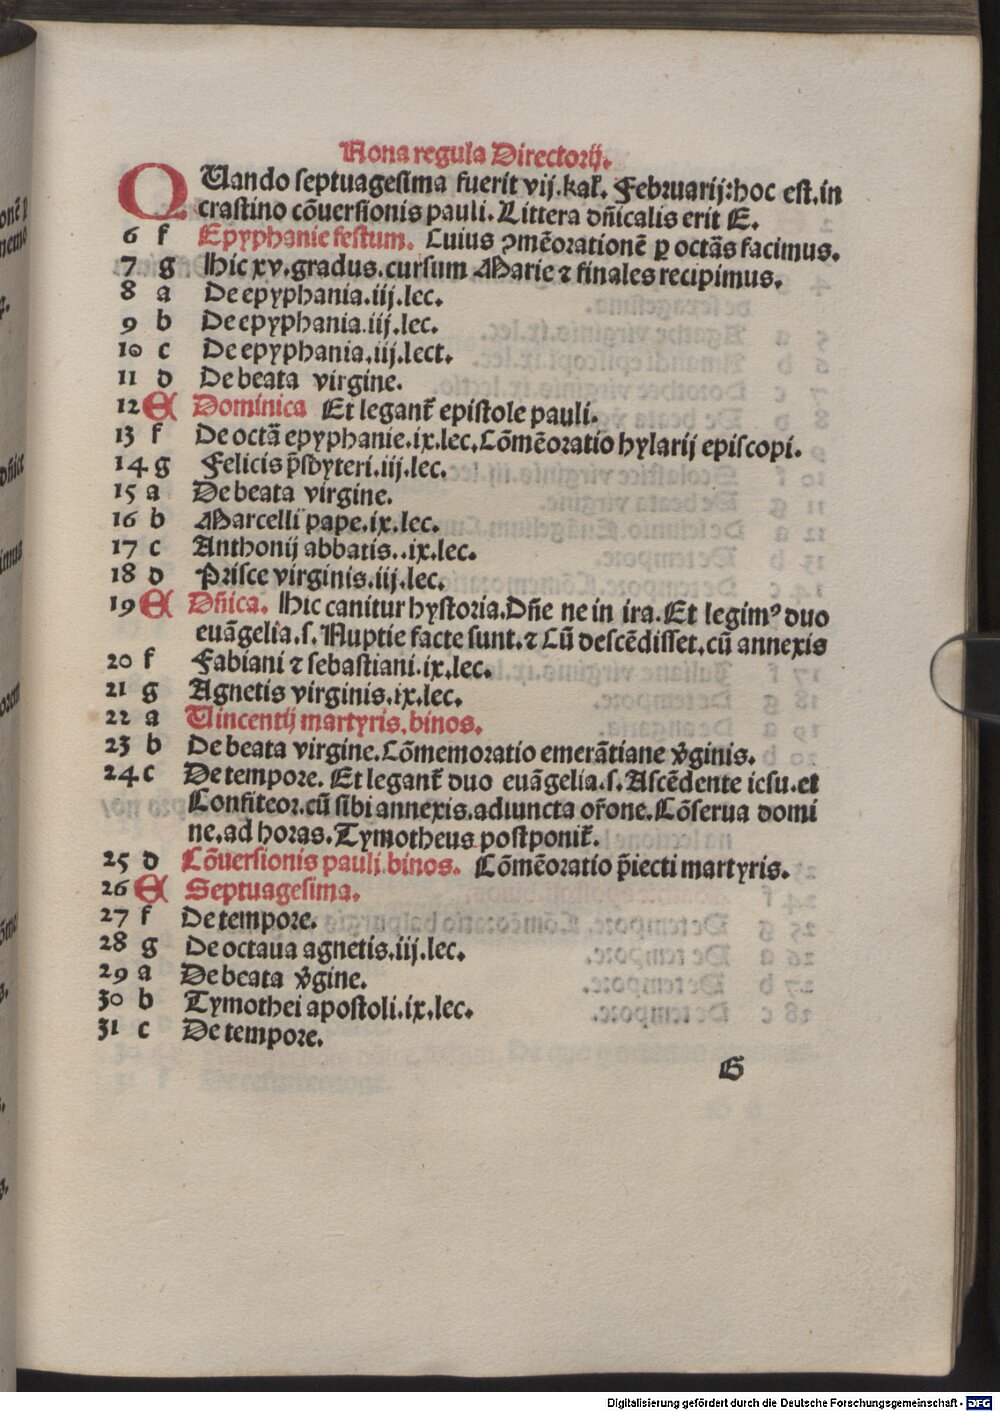 Nona regula Directorij.
QUando septuagesima fuerit vij.kal᷒. Februarij:hoc est.in
crastino cōuersionis pauli. Littera dn̄icalis erit E.
6 f Epyphanie festum. Cuius ꝯmēorationē ꝑ octās facimus.
7 g Hic xv.gradus.cursum Marie ⁊ finales recipimus.
8 a De epyphania.iij.lec.
9 b De epyphania.iij.lec.
10 c De epyphania.iij.lect.
11 d De beata virgine.
12 E Dominica Et legant᷒ epistole pauli.
13 f De octā epyphanie.ix.lec.Cōmēoratio hylarij episcopi.
14 g Felicis p̄sbyteri.iij.lec.
15 a De beata virgine.
16 b Marcelli pape.ix.lec.
17 c Anthonij abbatis..ix.lec.
18 d Prisce virginis.iij.lec.
19 E Dn̄ica. Hic canitur hystoria.Dn̄e ne in ira. Et legimꝰ duo
euāgelia.s.Nuptie facte sunt.⁊ Cū descēdisset.cū annexis
20 f Fabiani ⁊ sebastiani.ix.lec.
21 g Agnetis virginis.ix.lec.
22 a Uincentij martyris.binos.
23 b De beata virgine.Cōmemoratio emerātiane v̄ginis.
24 c De tempore. Et legant᷒ duo euāgelia.s.Ascēdente iesu.et
Confiteor.cū sibi annexis.adiuncta or̄one.Cōserua domi
ne.ad horas.Tymotheus postponit᷒.
25 d Cōuersionis pauli.binos. Cōmēoratio p̄iecti martyris.
26 E Septuagesima.
27 f De tempore.
28 g De octaua agnetis.iij.lec.
29 a De beata v̄gine.
30 b Tymothei apostoli.ix.lec.
31 c De tempore.
G
Digitalisierung gefördert durch die Deutsche Forschungsgemeinschaft - DFG